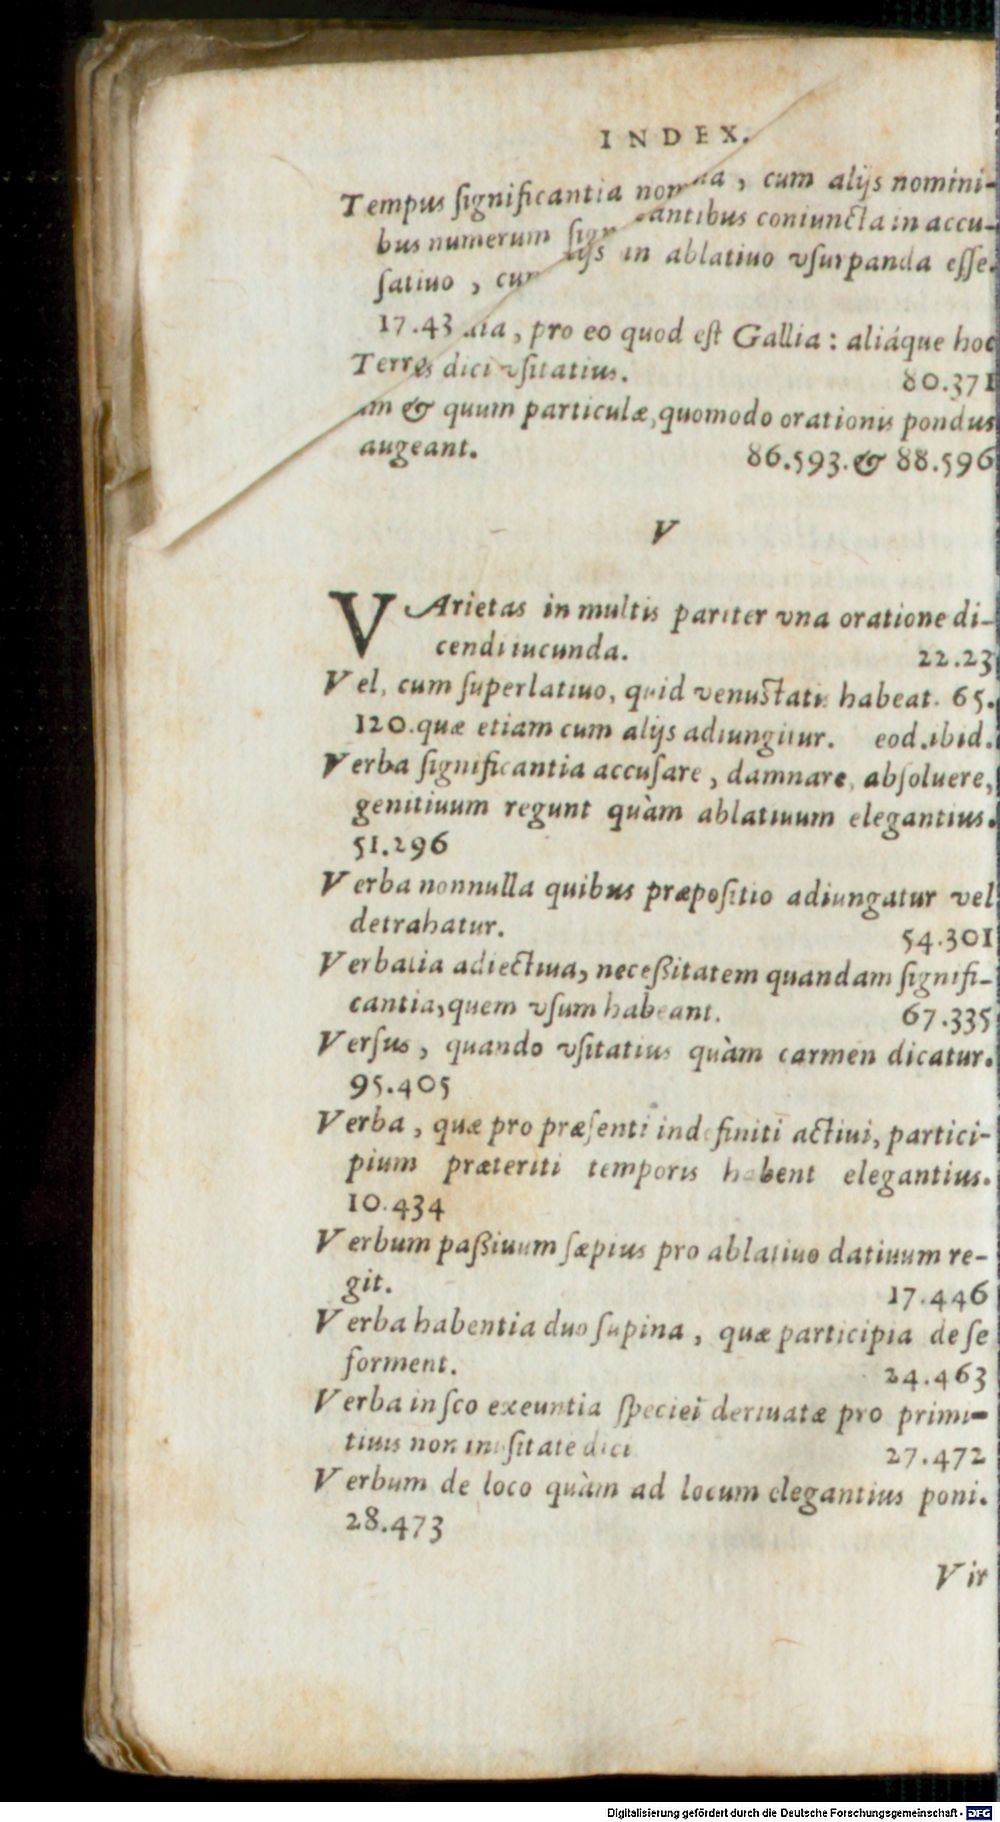 INDEX.
Tempus ſignificantia cum alijs nomini-
bus numerum coniuncta in accu-
ſatiuo, in ablatiuo vſurpanda eſſe.
17.43
pro eo quod eſt Gallia: aliáque hoc
dici vſitatius. 80.371
& quum particulæ, quomodo orationis pondus
augeant. 86.593. & 88.596
V
VArietas in multis pariter vna oratione di-
cendi iucunda. 22.23
Vel, cum ſuperlatiuo, quid venuſtatis habeat. 65.
120. quæ etiam cum alijs adiungitur. eod. ibid.
Verba ſignificantia accuſare, damnare, abſoluere,
genitiuum regunt quàm ablatiuum elegantius.
51.296
Verba nonnulla quibus præpoſitio adiungatur vel
detrahatur. 54.301
Verbalia adiectiua, neceßitatem quandam ſignifi-
cantia, quem vſum habeant. 67.335
Verſus, quando vſitatius quàm carmen dicatur.
95.405
Verba, quæ pro præſenti indefiniti actiui, partici-
pium præteriti temporis habent elegantius.
10.434
Verbum paßiuum ſæpius pro ablatiuo datiuum re-
git. 17.446
Verba habentia duo ſupina, quæ participia de ſe
forment. 24.463
Verba in ſco exeuntia ſpeciei deriuatæ pro primi-
tiuis non inuſitate dici 27.472
Verbum de loco quàm ad locum elegantius poni.
28.473
Vir
Digitalisierung gefördert durch die Deutsche Forschungsgemeinschaft - DFG